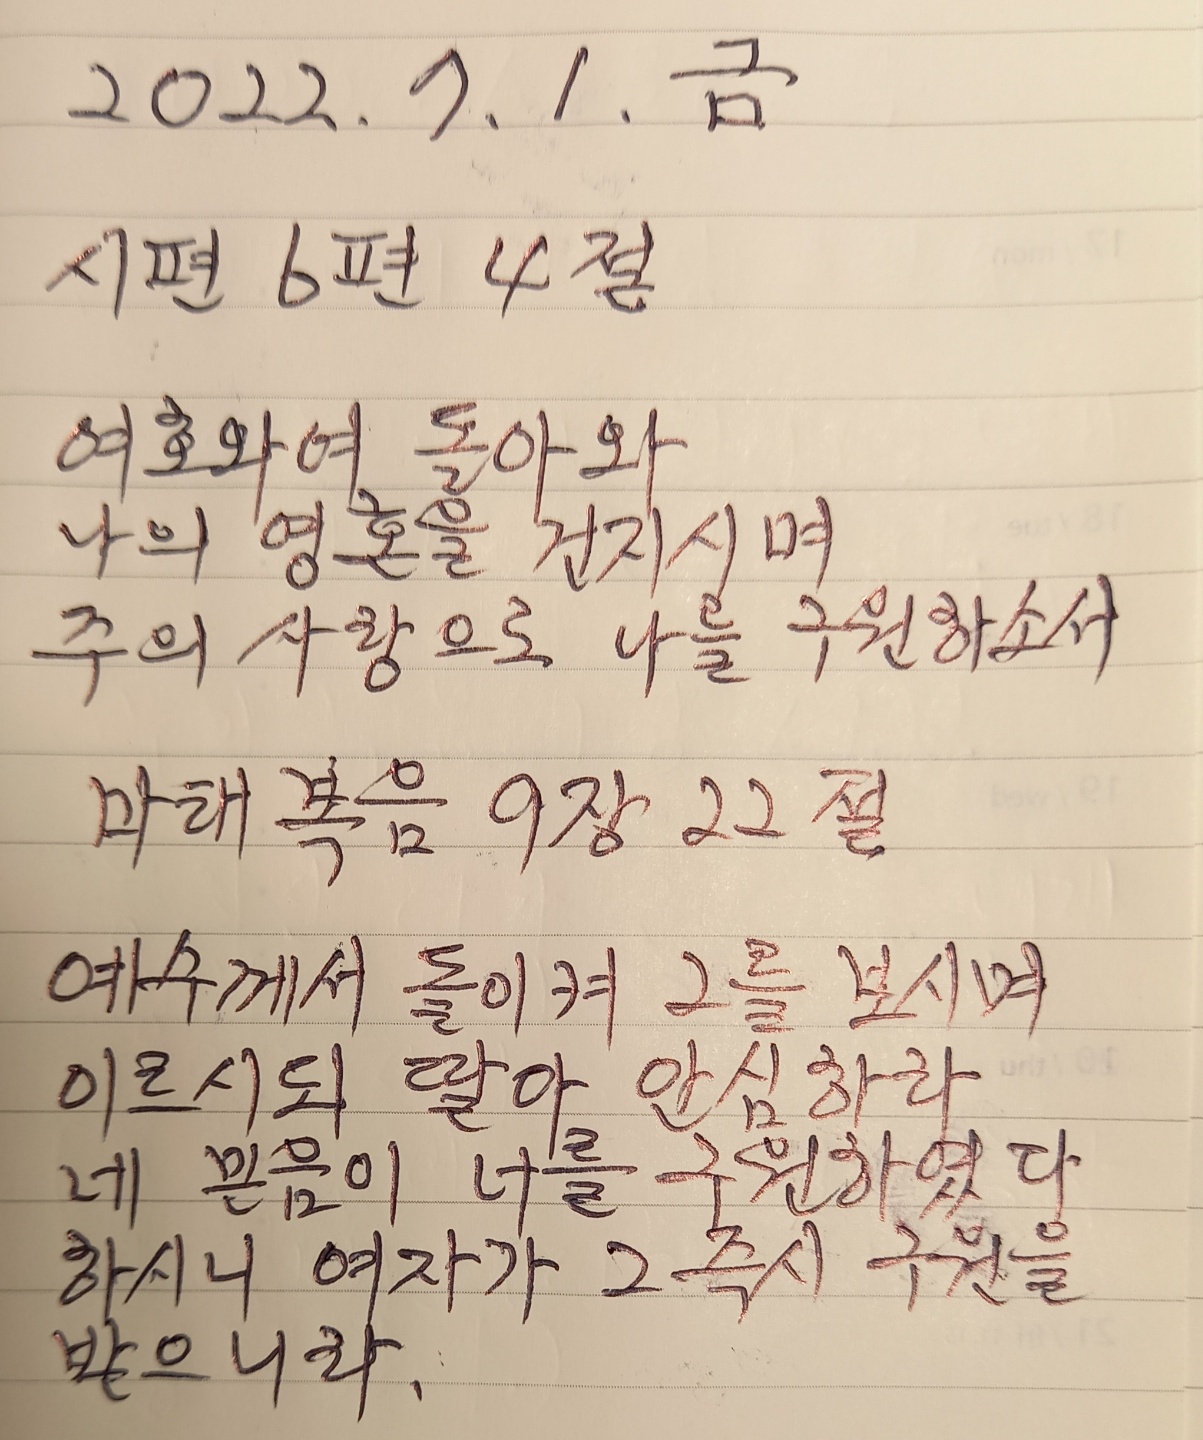 2022. 7. 1. 금
시편 6편 4절
여호와여 돌아와
나의 영혼을 건지시며
주의 사랑으로 나를 구원하소서
마태복음 9장 22절
예수께서 돌이켜 그를 보시며
이르시되 딸아 안심하라
네 믿음이 너를 구원하였다
하시니 여자가 그 즉시 구원을
받으니라.